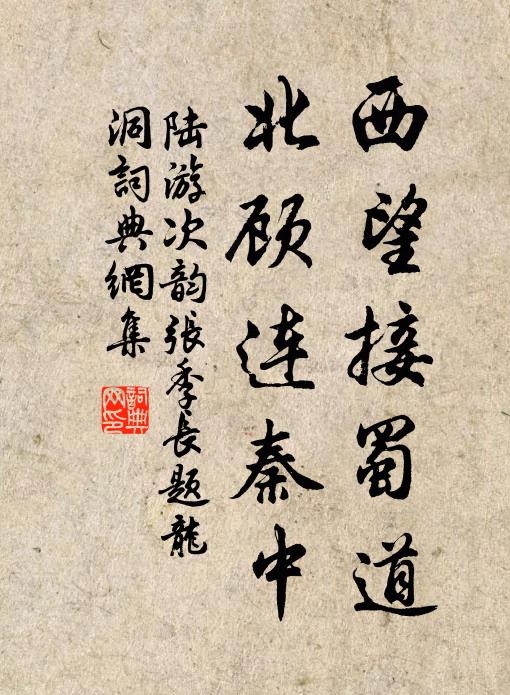 西望接蜀道
北顾连秦中
陆游次韵张季长题龙
洞词典網集
詞典
网印